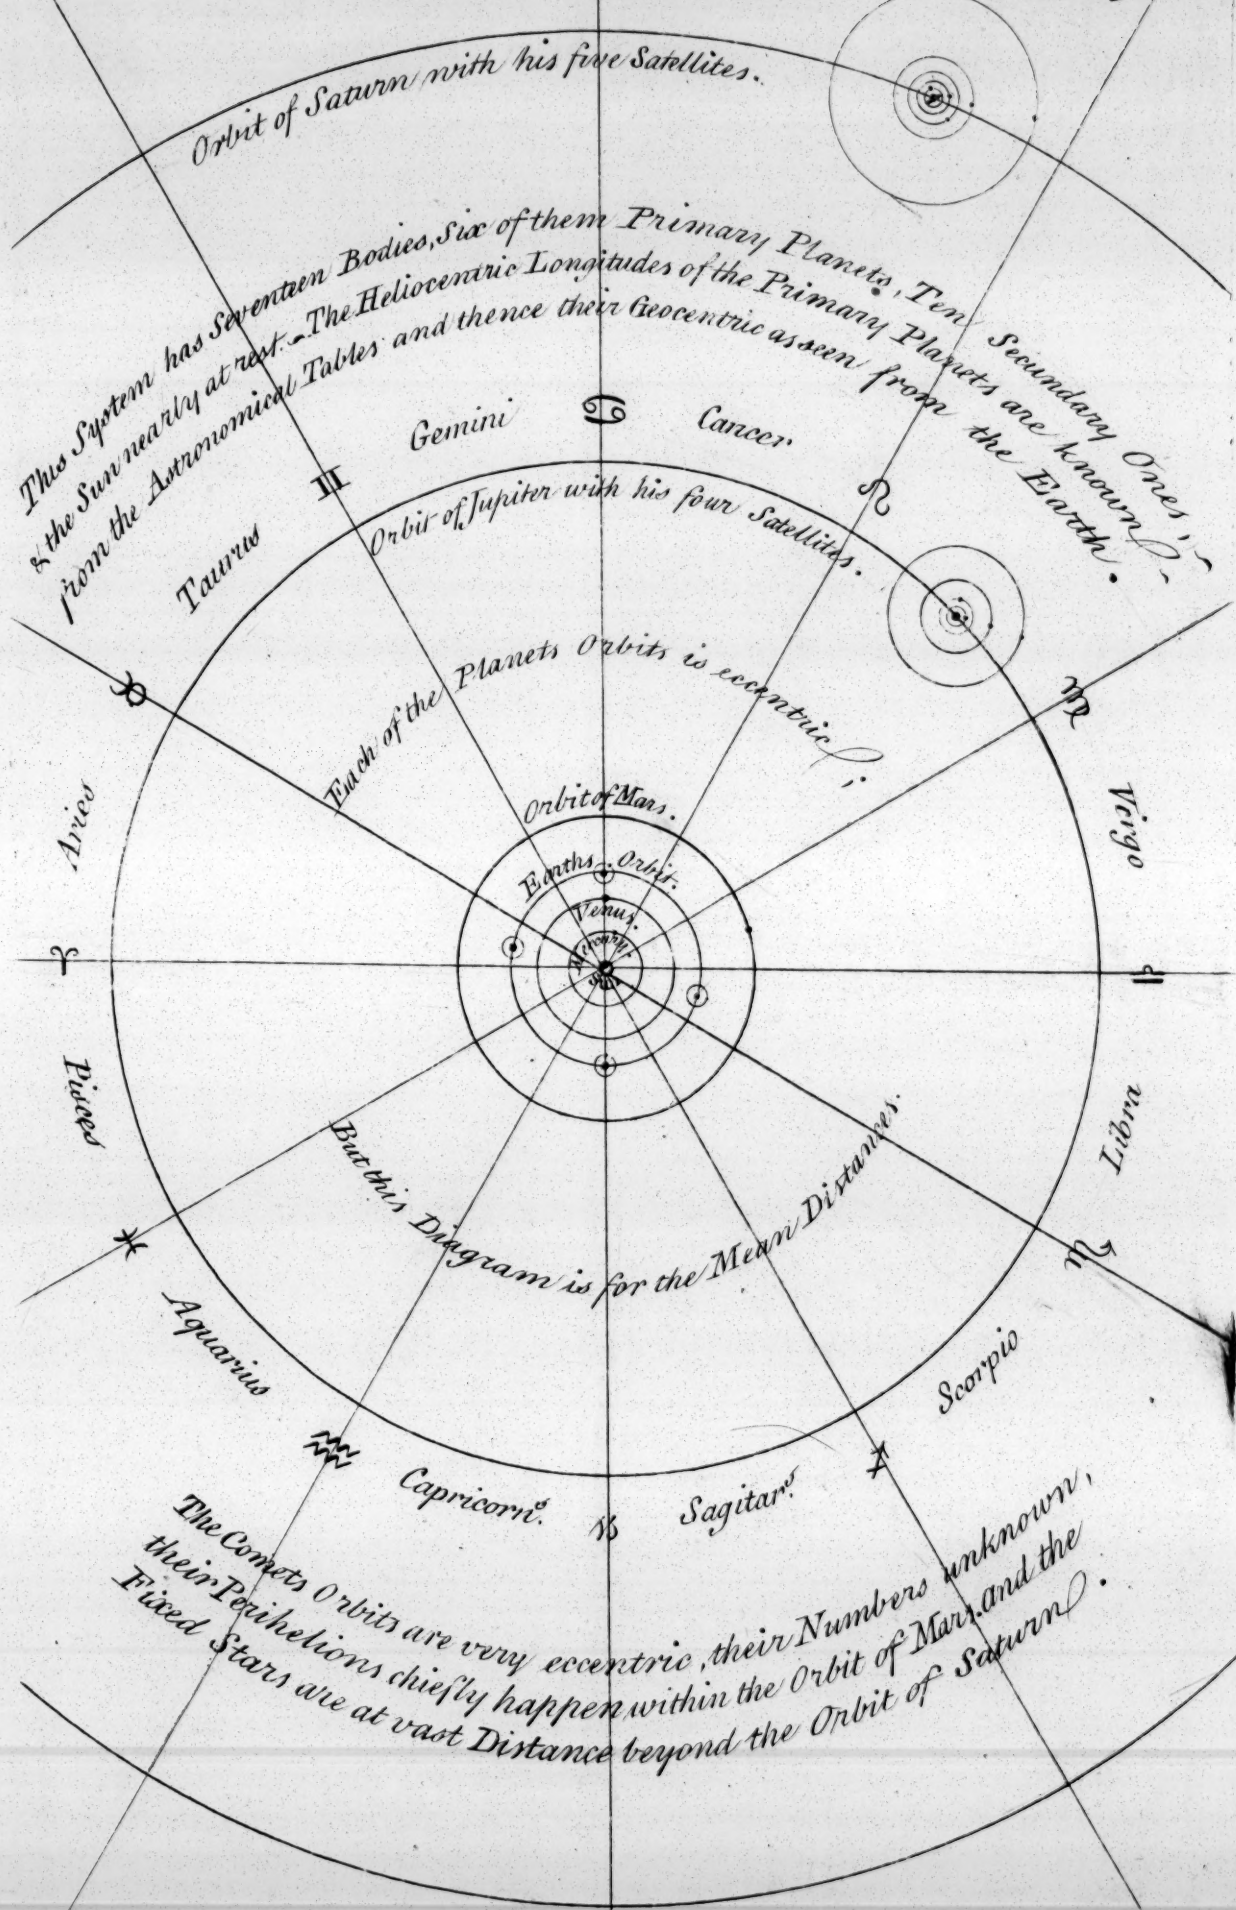 Orbit of Saturn with his five Satellites.
This System has Seventeen Bodies, Six of them Primary Planets, Ten Secundary Ones,
& the Sun nearly at rest. The Heliocentric Longitudes of the Primary Planets are known
from the Astronomical Tables and thence their Geocentric as seen from the Earth.
Gemini
♋
Cancer
♊
♌
Taurus
Orbit of Jupiter with his four Satellites.
♉
♍
Each of the Planets Orbits is eccentric;
Aries
Virgo
Orbit of Mars.
Earths Orbit.
Venus.
Mercury.
Sun
♈
♎
Pisces
Libra
But this Diagram is for the Mean Distances.
♓
♏
Aquarius
Scorpio
♒
♐
Capricorn.s
♑
Sagitar.s
The Comets Orbits are very eccentric, their Numbers unknown,
their Perihelions chiefly happen within the Orbit of Mars. and the
Fixed Stars are at vast Distance beyond the Orbit of Saturn.